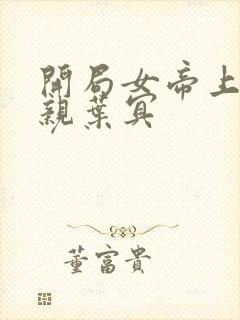 開局女帝上
親葉寘
董富貴